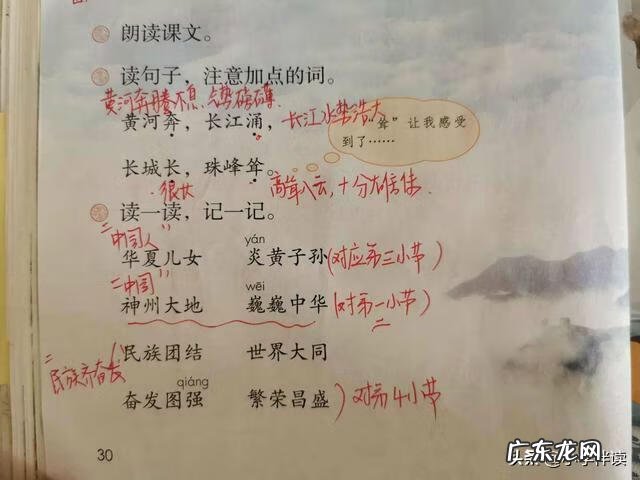 朗读课文。
读句子，注意加点的词。
黄河奔腾不息，气势磅礴
黄河奔，长江涌，长江水势浩大
耸”让我感受
到了……
长城长，珠峰耸。
很长
高耸入云，十分雄伟
读一读，记一记。
"中国人"
yán
华夏儿女 炎黄子孙(对应第三小节)
"中国"
wēi
神州大地 巍巍中华(对第一小节)
二
民族团结 世界大同
民族齐奋发
qiáng
奋发图强 繁荣昌盛)对第4小节
30
广东龙网
头条
伴读